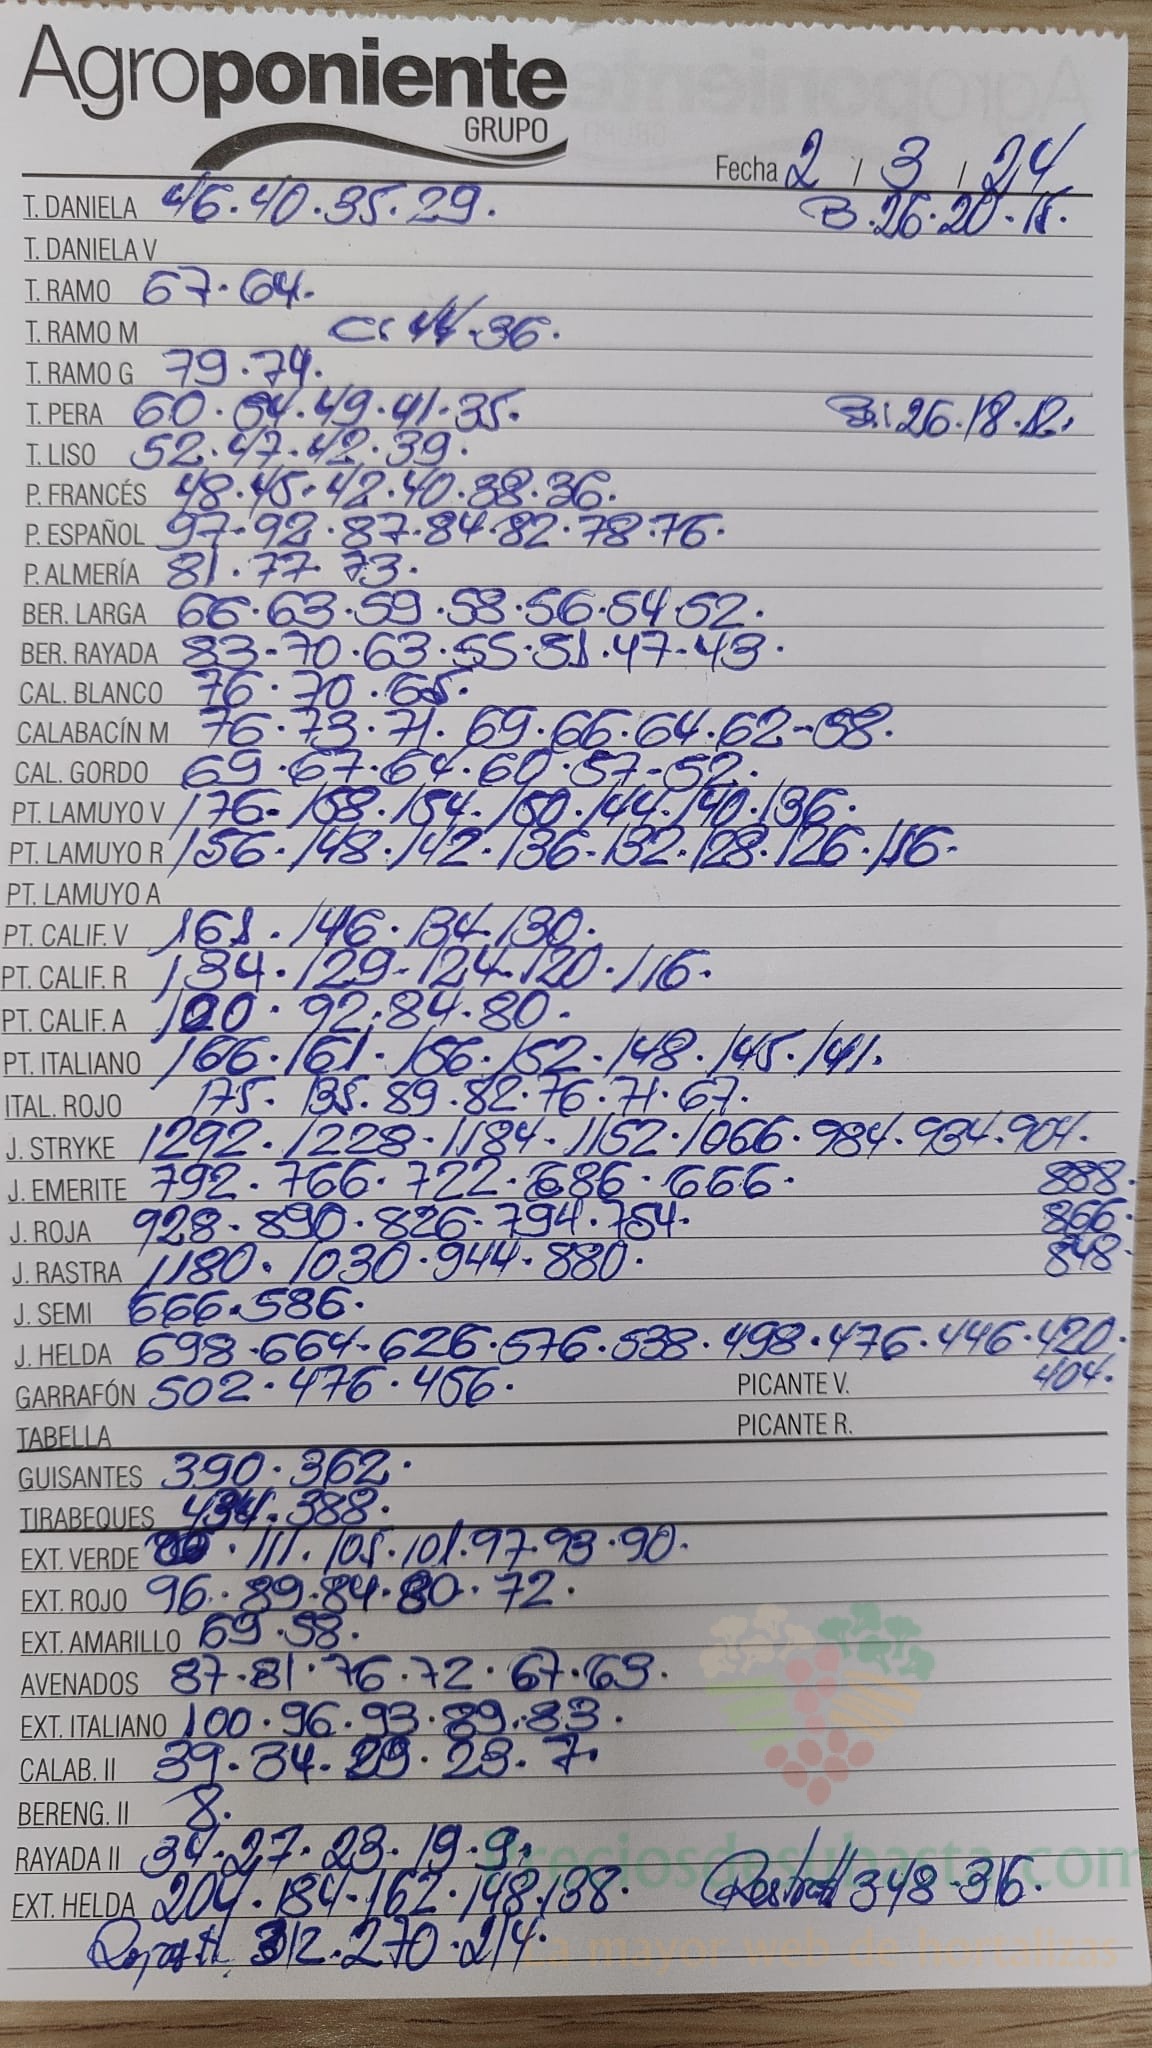 Agroponiente
GRUPO
Fecha 2 / 3 / 24
T. DANIELA 46.40.35.29. B.26.20.15.
T. DANIELA V
T. RAMO 67.64.
T. RAMO M C: 44.36.
T. RAMO G 79.74.
T. PERA 60.54.49.41.35. B: 26.18.12.
T. LISO 52.47.42.39.
P. FRANCÉS 48.45.42.40.38.36.
P. ESPAÑOL 97.92.87.84.82.78.76.
P. ALMERÍA 81.77.73.
BER. LARGA 66.63.59.58.56.54.52.
BER. RAYADA 83-70.63.55.51.47-43.
CAL. BLANCO 76.70.65.
CALABACÍN M 76.73.71.69.66.64.62-58.
CAL. GORDO 69.67.64.60.57-52.
PT. LAMUYO V 176-158.154.150.144.140.136.
PT. LAMUYO R 156.148.142-136-132.128.126.116-
PT. LAMUYO A
PT. CALIF. V 161.146.134.130.
PT. CALIF. R 134.129-124.120.116.
PT. CALIF. A 100.92.84.80.
PT. ITALIANO 166.161-156.152-148.145.141.
ITAL. ROJO 175.135.89.82.76.71.67.
J. STRYKE 1292.1228-1184-1152.1066.984.934.904.
J. EMERITE 792.766.722-686.666. 888.
J. ROJA 928.890.826-794.754. 866.
J. RASTRA 1180.1030.944.880. 848.
J. SEMI 666.586.
J. HELDA 698.664-626.576.538.498.476.446.420.
GARRAFÓN 502.476.456. PICANTE V. 404.
TABELLA PICANTE R.
GUISANTES 390.362.
TIRABEQUES 434.388.
EXT. VERDE .111.105.101.97.93.90.
EXT. ROJO 96.89.84.80.72.
EXT. AMARILLO 69.58.
AVENADOS 87.81.76.72.67.63.
EXT. ITALIANO 100.96.93.89.83.
CALAB. II 39.34.29.23.7.
BERENG. II 8.
RAYADA II 34.27.23.19.9.
preciosdesubasta.com
EXT. HELDA 204.184-162.148.138. 348-316.
312.270.214.
La mayor web de hortalizas